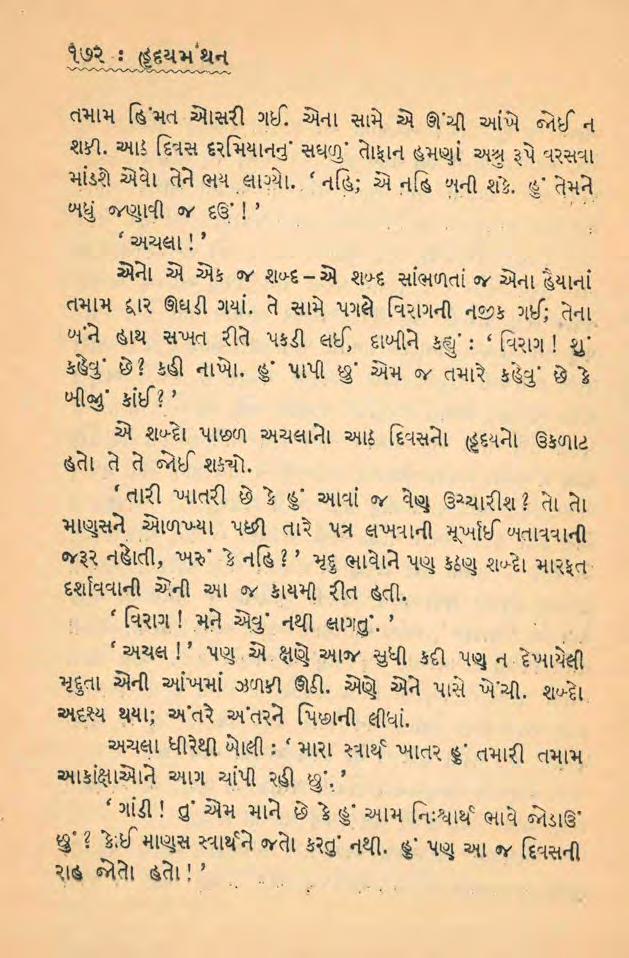 ૧૭૨ : હૃદયમંથન
તમામ હિંમત ઓસરી ગઈ. એના સામે એ ઊંચી આંખે જોઈ ન
શકી. આઠ દિવસ દરમિયાનનું સઘળું તોફાન હમણાં અશ્રુ રૂપે વરસવા
માંડશે એવો તેને ભય લાગ્યો. ‘ નહિ; એ નહિ બની શકે. હું તેમને
બધું જણાવી જ દઉં ! ’
‘ અચલા ! ’
એનો એ એક જ શબ્દ – એ શબ્દ સાંભળતાં જ એના હૈયાનાં
તમામ દ્વાર ઊઘડી ગયાં. તે સામે પગલે વિરાગની નજીક ગઈ; તેના
બંને હાથ સખત રીતે પકડી લઈ, દાબીને કહ્યું : ‘ વિરાગ ! શું
કહેવું છે? કહી નાખો. હું પાપી છું એમ જ તમારે કહેવું છે કે
બીજું કાંઈ ? ’
એ શબ્દો પાછળ અચલાનો આઠ દિવસનો હૃદયનો ઉકળાટ
હતો તે તે જોઈ શક્યો.
‘ તારી ખાતરી છે કે હું આવાં જ વેણ ઉચ્ચારીશ ? તો તો
માણસને ઓળખ્યા પછી તારે પત્ર લખવાની મૂર્ખાઈ બતાવવાની
જરૂર નહોતી, ખરું કે નહિ ? ’ મૃદુ ભાવોને પણ કઠણ શબ્દો મારફત
દર્શાવવાની એની આ જ કાયમી રીત હતી.
‘ વિરાગ ! મને એવું નથી લાગતું. ’
‘ અચલ ! ’ પણ એ ક્ષણે આજ સુધી કદી પણ ન દેખાયેલી
મૃદુતા એની આંખમાં ઝળકી ઊઠી. એણે એને પાસે ખેંચી. શબ્દો
અદશ્ય થયા; અંતરે અંતરને પિછાની લીધાં.
અચલા ધીરેથી બોલી : ‘ મારા સ્વાર્થ ખાતર હું તમારી તમામ
આકાંક્ષાઓને આગ ચાંપી રહી છું. ’
‘ ગાંડી ! તું એમ માને છે કે હું આમ નિઃશ્વાર્થ ભાવે જોડાઉં
છું ? કોઈ માણસ સ્વાર્થને જતો કરતું નથી. હું પણ આ જ દિવસની
રાહ જોતો હતો ! ’